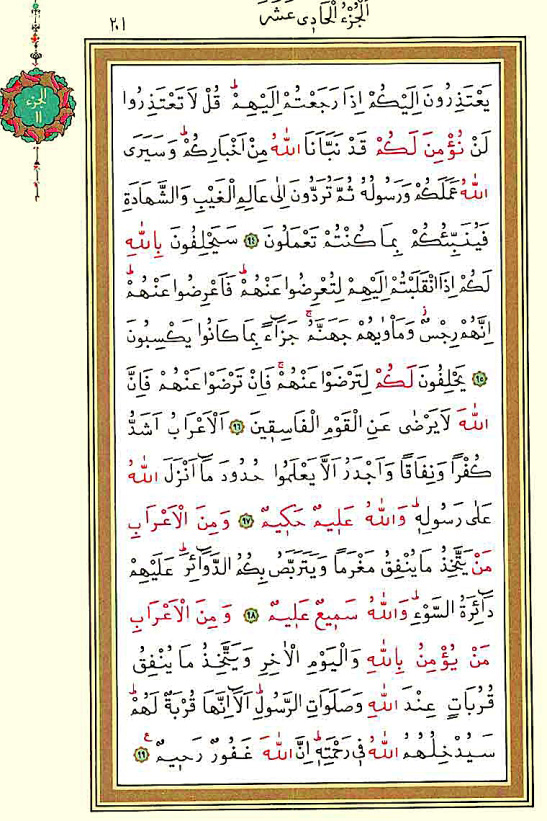 اَلْجُزْءُ الْحَادِى عَشَرَ
٢٠١
الجزء
١١
يَعْتَذِرُونَ اِلَيْكُمْ اِذَا رَجَعْتُمْ اِلَيْهِمْۜ قُلْ لَا تَعْتَذِرُوا
لَنْ نُؤْمِنَ لَكُمْ قَدْ نَبَّاَنَا اللّٰهُ مِنْ اَخْبَارِكُمْۜ وَسَيَرَى
اللّٰهُ عَمَلَكُمْ وَرَسُولُهُ ثُمَّ تُرَدُّونَ اِلٰى عَالِمِ الْغَيْبِ وَالشَّهَادَةِ
فَيُنَبِّئُكُمْ بِمَا كُنْتُمْ تَعْمَلُونَ ﴿٩٤﴾ سَيَحْلِفُونَ بِاللّٰهِ
لَكُمْ اِذَا انْقَلَبْتُمْ اِلَيْهِمْ لِتُعْرِضُوا عَنْهُمْۜ فَاَعْرِضُوا عَنْهُمْۜ
اِنَّهُمْ رِجْسٌۘ وَمَاْوٰيهُمْ جَهَنَّمُۚ جَزَٓاءً بِمَا كَانُوا يَكْسِبُونَ
﴿٩٥﴾ يَحْلِفُونَ لَكُمْ لِتَرْضَوْا عَنْهُمْۚ فَاِنْ تَرْضَوْا عَنْهُمْ فَاِنَّ
اللّٰهَ لَا يَرْضٰى عَنِ الْقَوْمِ الْفَاسِقِينَ ﴿٩٦﴾ اَلْاَعْرَابُ اَشَدُّ
كُفْرًا وَنِفَاقًا وَاَجْدَرُ اَلَّا يَعْلَمُوا حُدُودَ مَٓا اَنْزَلَ اللّٰهُ
عَلٰى رَسُولِهِۜ وَاللّٰهُ عَلِيمٌ حَكِيمٌ ﴿٩٧﴾ وَمِنَ الْاَعْرَابِ
مَنْ يَتَّخِذُ مَا يُنْفِقُ مَغْرَمًا وَيَتَرَبَّصُ بِكُمُ الدَّوَٓائِرَۜ عَلَيْهِمْ
دَٓائِرَةُ السَّوْءِۜ وَاللّٰهُ سَمِيعٌ عَلِيمٌ ﴿٩٨﴾ وَمِنَ الْاَعْرَابِ
مَنْ يُؤْمِنُ بِاللّٰهِ وَالْيَوْمِ الْاٰخِرِ وَيَتَّخِذُ مَا يُنْفِقُ
قُرُبَاتٍ عِنْدَ اللّٰهِ وَصَلَوَاتِ الرَّسُولِۜ اَلَٓا اِنَّهَا قُرْبَةٌ لَهُمْۜ
سَيُدْخِلُهُمُ اللّٰهُ فِى رَحْمَتِهِۜ اِنَّ اللّٰهَ غَفُورٌ رَحِيمٌ۟ ﴿٩٩﴾